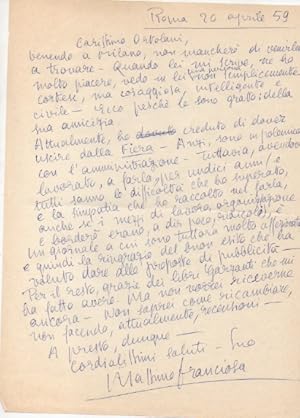 Roma 20 aprile 59
Carissimo Ortolani,
venendo a Milano, non mancherò di venirla
a trovare - Quando lei mi scrive, ne ho
molto piacere, vedo in lei non semplicemente
cortesi, ma coraggiosa, intelligente e
civile - Ecco perché le sono grato della
sua amicizia.
Attualmente, ho creduto di dover
uscire dalla Fiera - Anzi, sono in polemica
con l'amministrazione - Tuttavia, avendo
lavorato, a farla, per undici anni, e
tutti sanno le difficoltà che ho superato,
e la simpatia che ho raccolto nel farla,
anche se i mezzi di lavoro, organizzazione
e borderò erano, a dir poco, ridicoli, è
un giornale a cui sono tuttora molto affezionato
e quindi la ringrazio del buon esito che ha
voluto dare alla proposta di pubblicità -
Per il resto, grazie dei libri Garzanti che mi
ha fatto avere. Ma non vorrei riceverne
ancora - Non saprei come ricambiare,
non facendo, attualmente, recensioni -
A presto, dunque -
Cordialissimi saluti - Suo
Massimo Franciosa